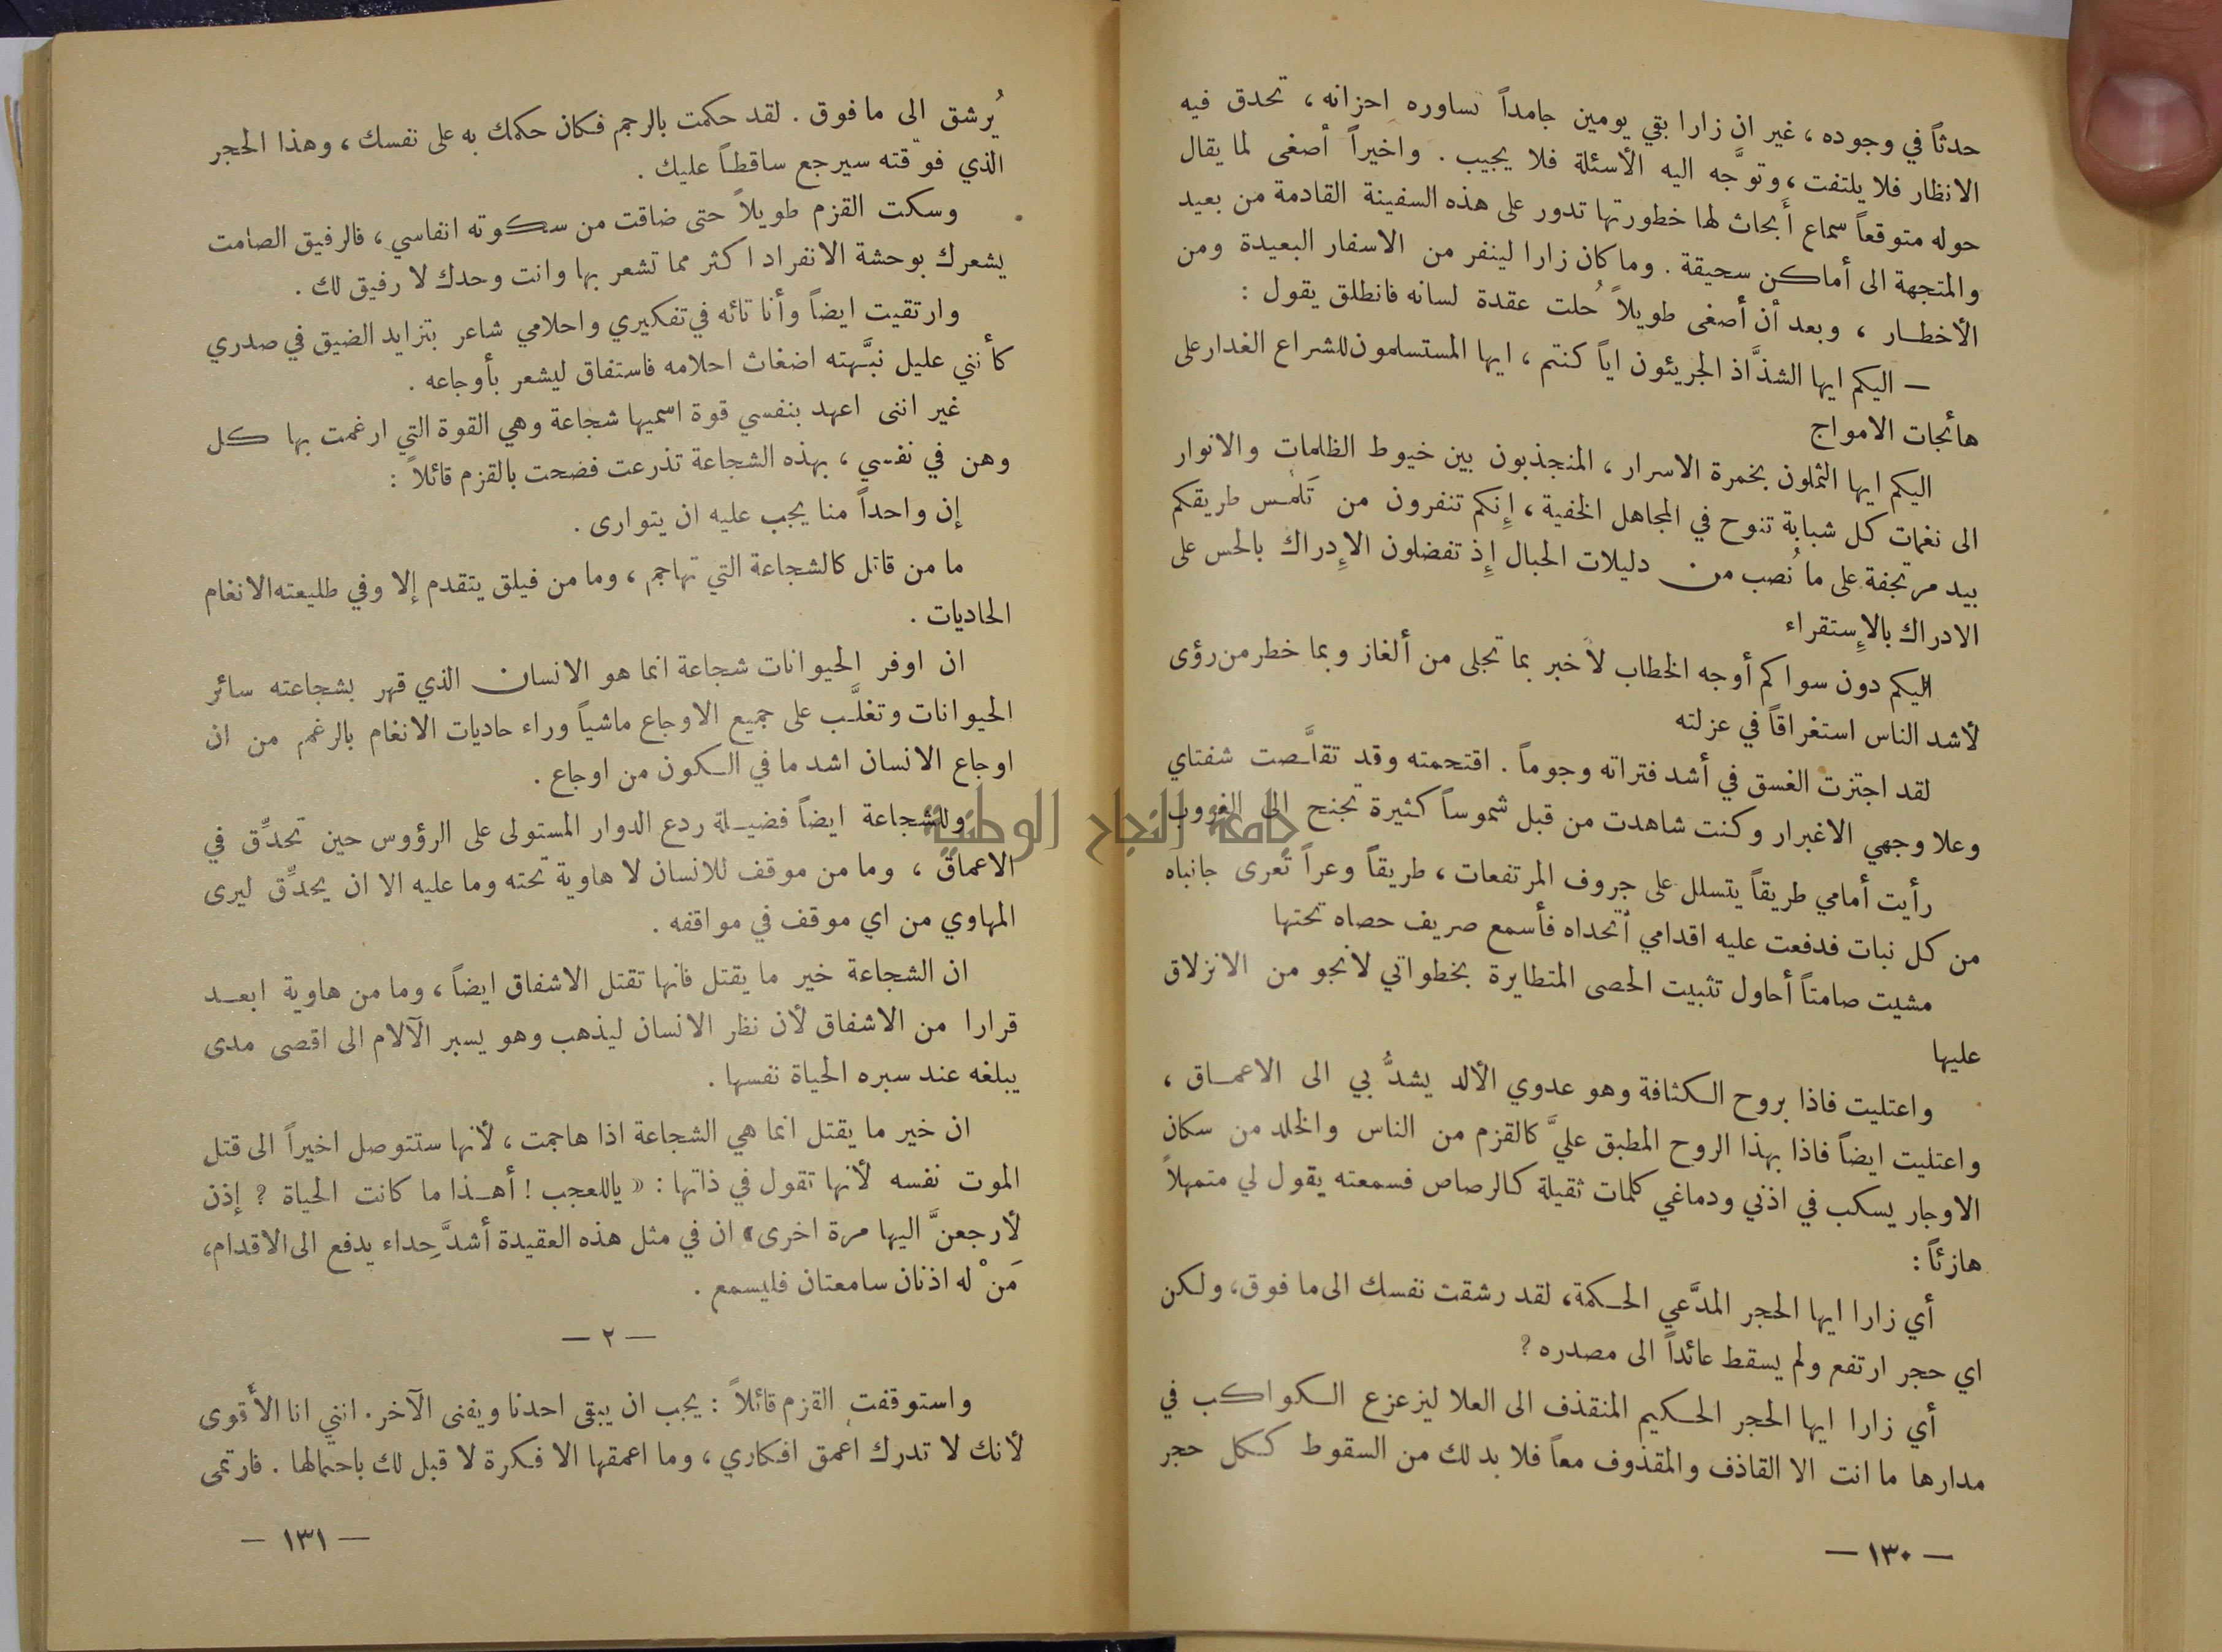 حدثاً في وجوده ، غير ان زارا بقي يومين جامداً تساوره احزانه ، تحدق فيه
الانظار فلا يلتفت ، وتوجَّه اليه الأسئلة فلا يجيب . واخيراً أصغى لما يقال
حوله متوقعاً سماع أبحاث لها خطورتها تدور على هذه السفينة القادمة من بعيد
والمتجهة الى أماكن سحيقة . وما كان زارا لينفر من الاسفار البعيدة ومن
الأخطار ، وبعد أن أصغى طويلاً حُلت عقدة لسانه فانطلق يقول :
— اليكم ايها الشذَّاذ الجريئون اياً كنتم ، ايها المستسلمون للشراع الغدار على
هائجات الامواج
اليكم ايها الثملون بخمرة الاسرار ، المنجذبون بين خيوط الظلمات والانوار
الى نغمات كل شبابة تنوح في المجاهل الخفية ، إِنكم تنفرون من تَلمُس طريقكم
بيد مرتجفة على ما نُصب من دليلات الحبال إِذ تفضلون الإِدراك بالحس على
الادراك بالإِستقراء
اليكم دون سواكم أوجه الخطاب لأخبر بما تجلى من ألغاز وبما خطر من رؤى
لأشد الناس استغراقاً في عزلته
لقد اجتزت الغسق في أشد فتراته وجوماً . اقتحمته وقد تقلَّصت شفتاي
وعلا وجهي الاغبرار وكنت شاهدت من قبل شموساً كثيرة تجنح الى الغروب
رأيت أمامي طريقاً يتسلل على جروف المرتفعات ، طريقاً وعراً تعرى جانباه
من كل نبات فدفعت عليه اقدامي أتحداه فأسمع صريف حصاه تحتها
مشيت صامتاً أحاول تثبيت الحصى المتطايرة بخطواتي لانجو من الانزلاق
عليها
واعتليت فاذا بروح الكثافة وهو عدوي الألد يشدُّ بي الى الاعماق ،
واعتليت ايضاً فاذا بهذا الروح المطبق عليَّ كالقزم من الناس والخلد من سكان
الاوجار يسكب في اذني ودماغي كلمات ثقيلة كالرصاص فسمعته يقول لي متمهلاً
هازئاً :
أي زارا ايها الحجر المدَّعي الحكمة، لقد رشقت نفسك الى ما فوق، ولكن
اي حجر ارتفع ولم يسقط عائداً الى مصدره ?
أي زارا ايها الحجر الحكيم المنقذف الى العلا ليزعزع الكواكب في
مدارها ما انت الا القاذف والمقذوف معاً فلا بد لك من السقوط ككل حجر
— ١٣٠ —
يُرشق الى ما فوق . لقد حكمت بالرجم فكان حكمك به على نفسك ، وهذا الحجر
الذي فوّقته سيرجع ساقطاً عليك .
وسكت القزم طويلاً حتى ضاقت من سكوته انفاسي ، فالرفيق الصامت
يشعرك بوحشة الانفراد اكثر مما تشعر بها وانت وحدك لا رفيق لك .
وارتقيت ايضاً وأنا تائه في تفكيري واحلامي شاعر بتزايد الضيق في صدري
كأنني عليل نبَّهته اضغاث احلامه فاستفاق ليشعر بأوجاعه .
غير انني اعهد بنفسي قوة اسميها شجاعة وهي القوة التي ارغمت بها كل
وهن في نفسي ، بهذه الشجاعة تذرعت فضحت بالقزم قائلاً :
إن واحداً منا يجب عليه ان يتوارى .
ما من قاتل كالشجاعة التي تهاجم ، وما من فيلق يتقدم إلا وفي طليعته الانغام
الحاديات .
ان اوفر الحيوانات شجاعة انما هو الانسان الذي قهر بشجاعته سائر
الحيوانات وتغلَّب على جميع الاوجاع ماشياً وراء حاديات الانغام بالرغم من ان
اوجاع الانسان اشد ما في الكون من اوجاع .
وللشجاعة ايضاً فضيلة ردع الدوار المستولى على الرؤوس حين تحدِّق في
الاعماق ، وما من موقف للانسان لا هاوية تحته وما عليه الا ان يحدِّق ليرى
المهاوي من اي موقف في مواقفه .
ان الشجاعة خير ما يقتل فانها تقتل الاشفاق ايضاً ، وما من هاوية ابعد
قرارا من الاشفاق لأن نظر الانسان ليذهب وهو يسبر الآلام الى اقصى مدى
يبلغه عند سبره الحياة نفسها .
ان خير ما يقتل انما هي الشجاعة اذا هاجمت ، لأنها ستتوصل اخيراً الى قتل
الموت نفسه لأنها تقول في ذاتها : « ياللعجب ! أهذا ما كانت الحياة ? إذن
لأرجعنَّ اليها مرة اخرى » ان في مثل هذه العقيدة أشدَّ حِداء يدفع الى الاقدام،
مَنْ له اذنان سامعتان فليسمع .
— ٢ —
واستوقفت القزم قائلاً : يجب ان يبقى احدنا ويفنى الآخر . انني انا الأقوى
لأنك لا تدرك اعمق افكاري ، وما اعمقها الا فكرة لا قبل لك باحتمالها . فارتمى
— ١٣١ —
جامعة النجاح الوطنية